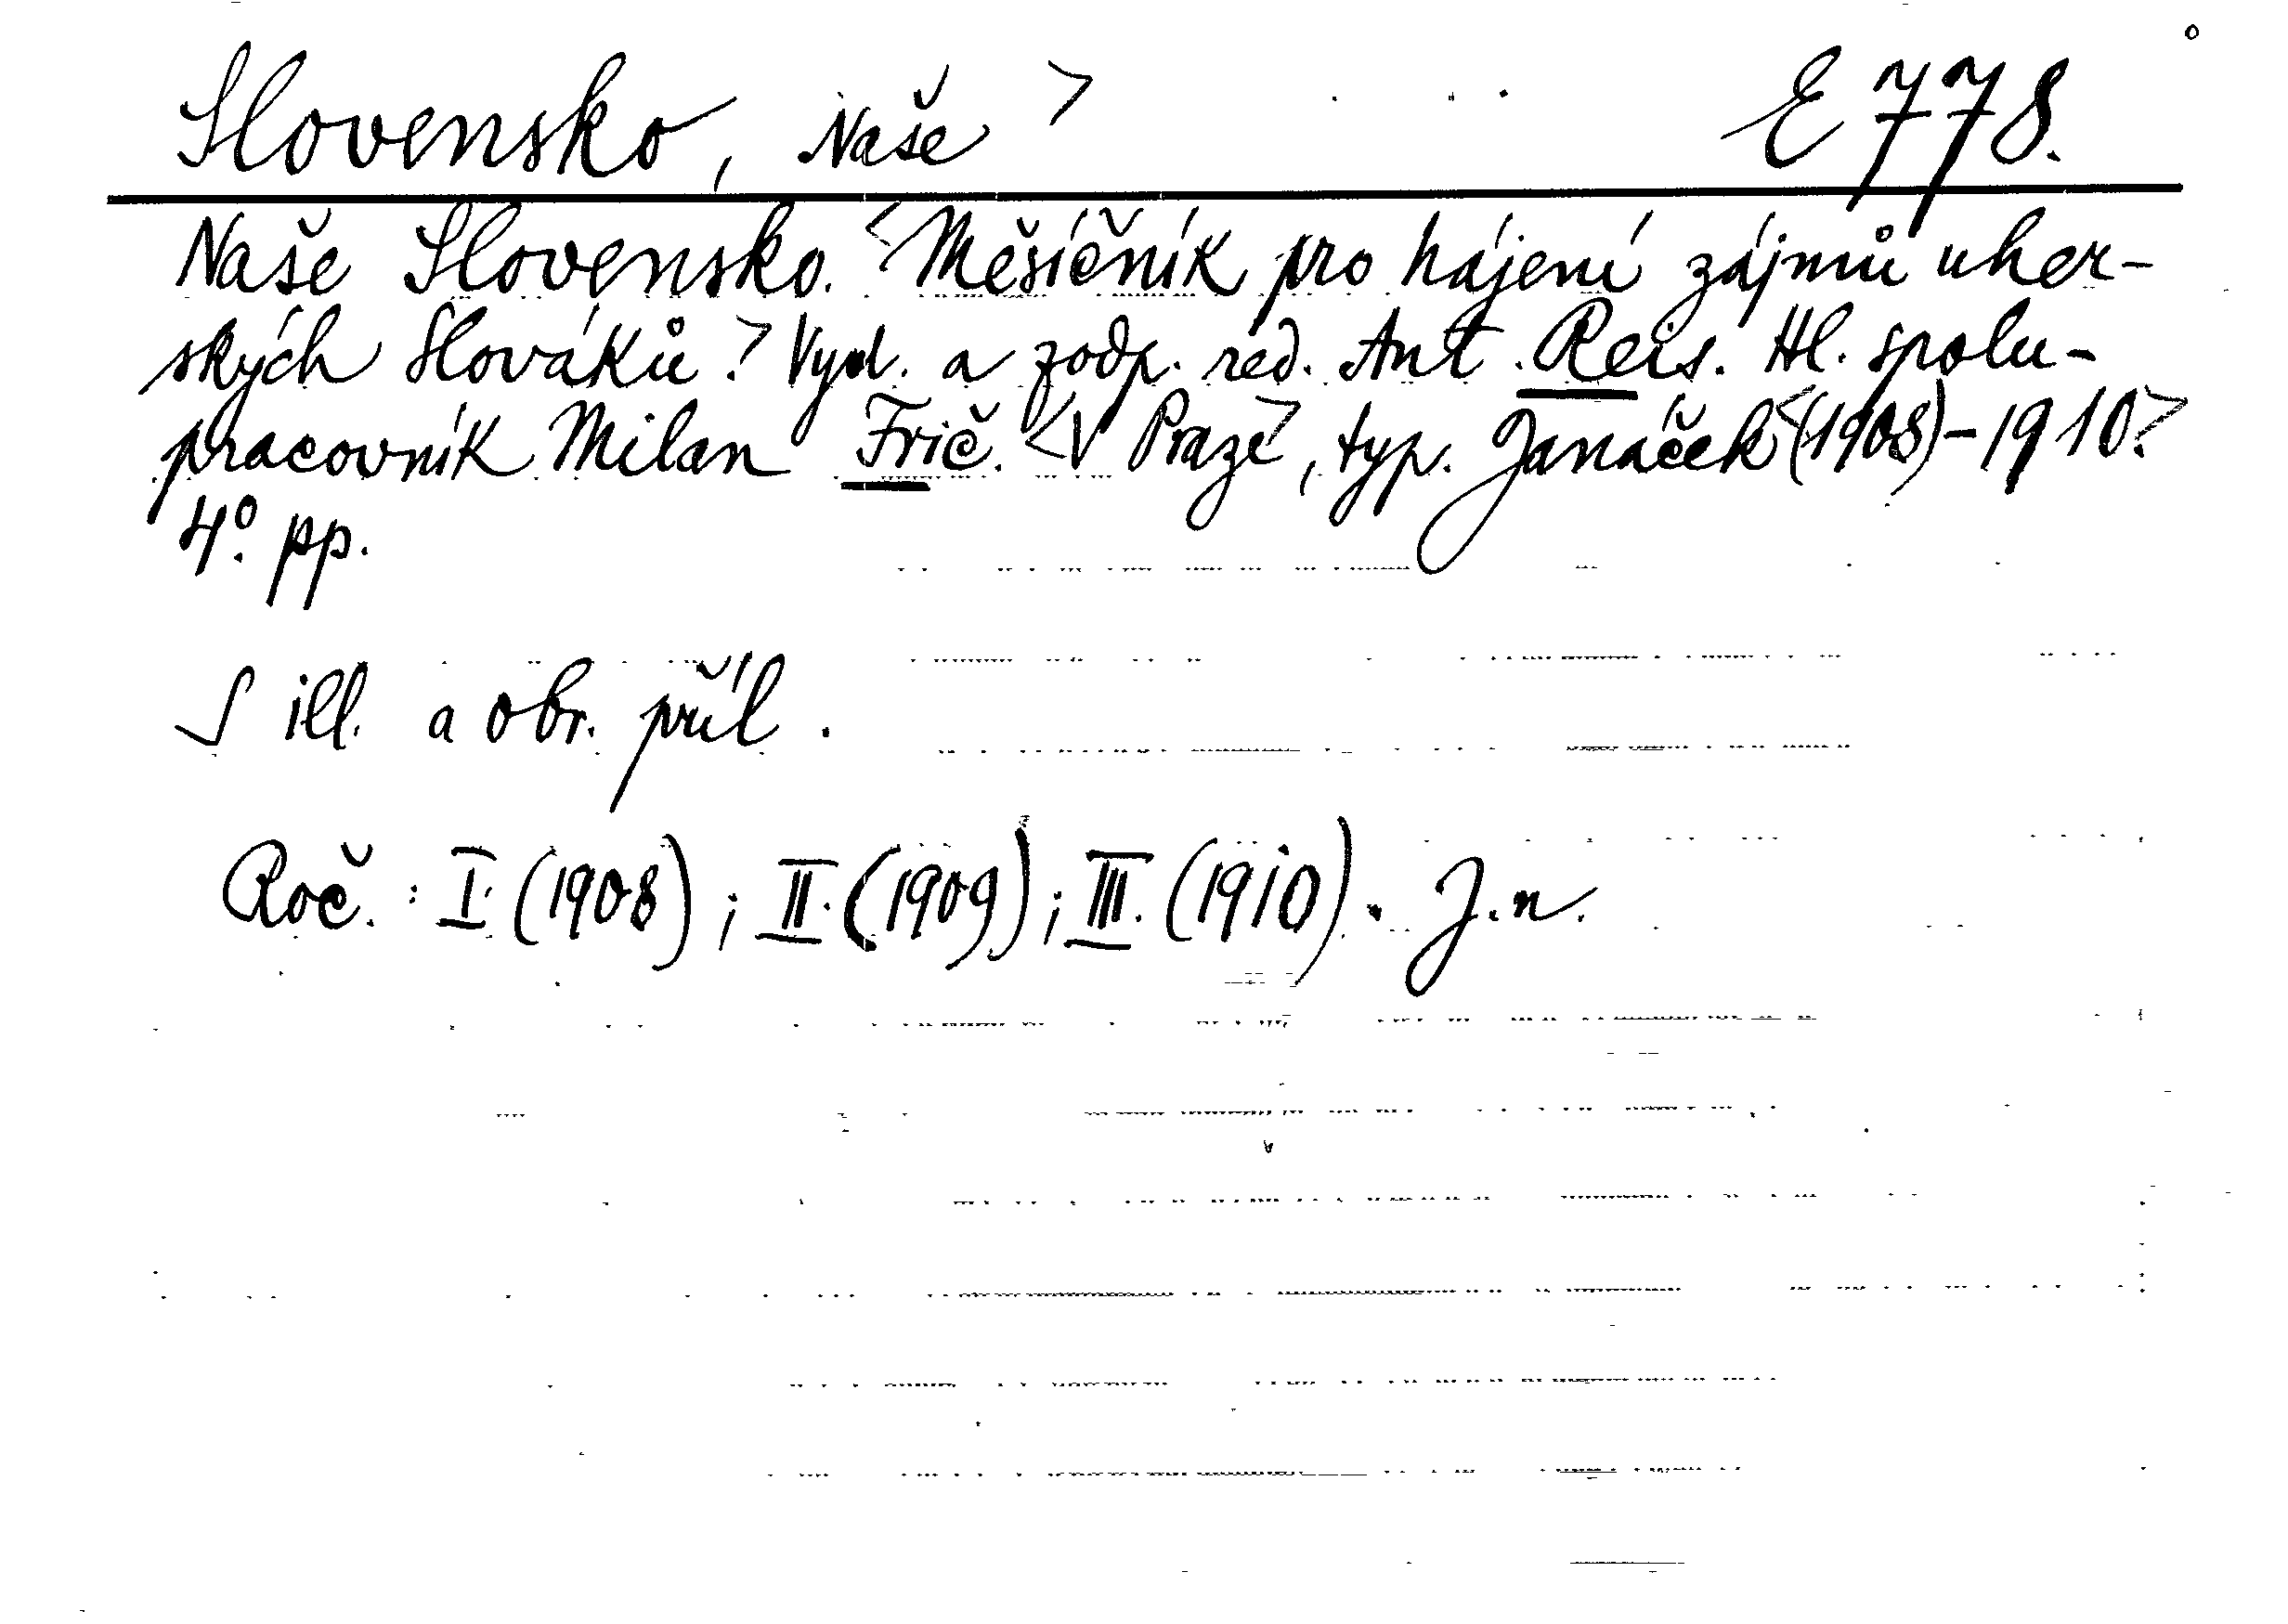 Slovensko, Naše > E 778.
Naše Slovensko. <Měsíčník pro hájení zájmů uher-
ských Slováků.> Vyd. a zodp. red. Ant. Reis. Hl. spolu-
pracovník Milan Frič. <V Praze>, typ. Janáček <(1908)-1910.>
4°. pp.
S ill. a obr. příl.
Roč.: I. (1908); II. (1909); III. (1910). J. n.